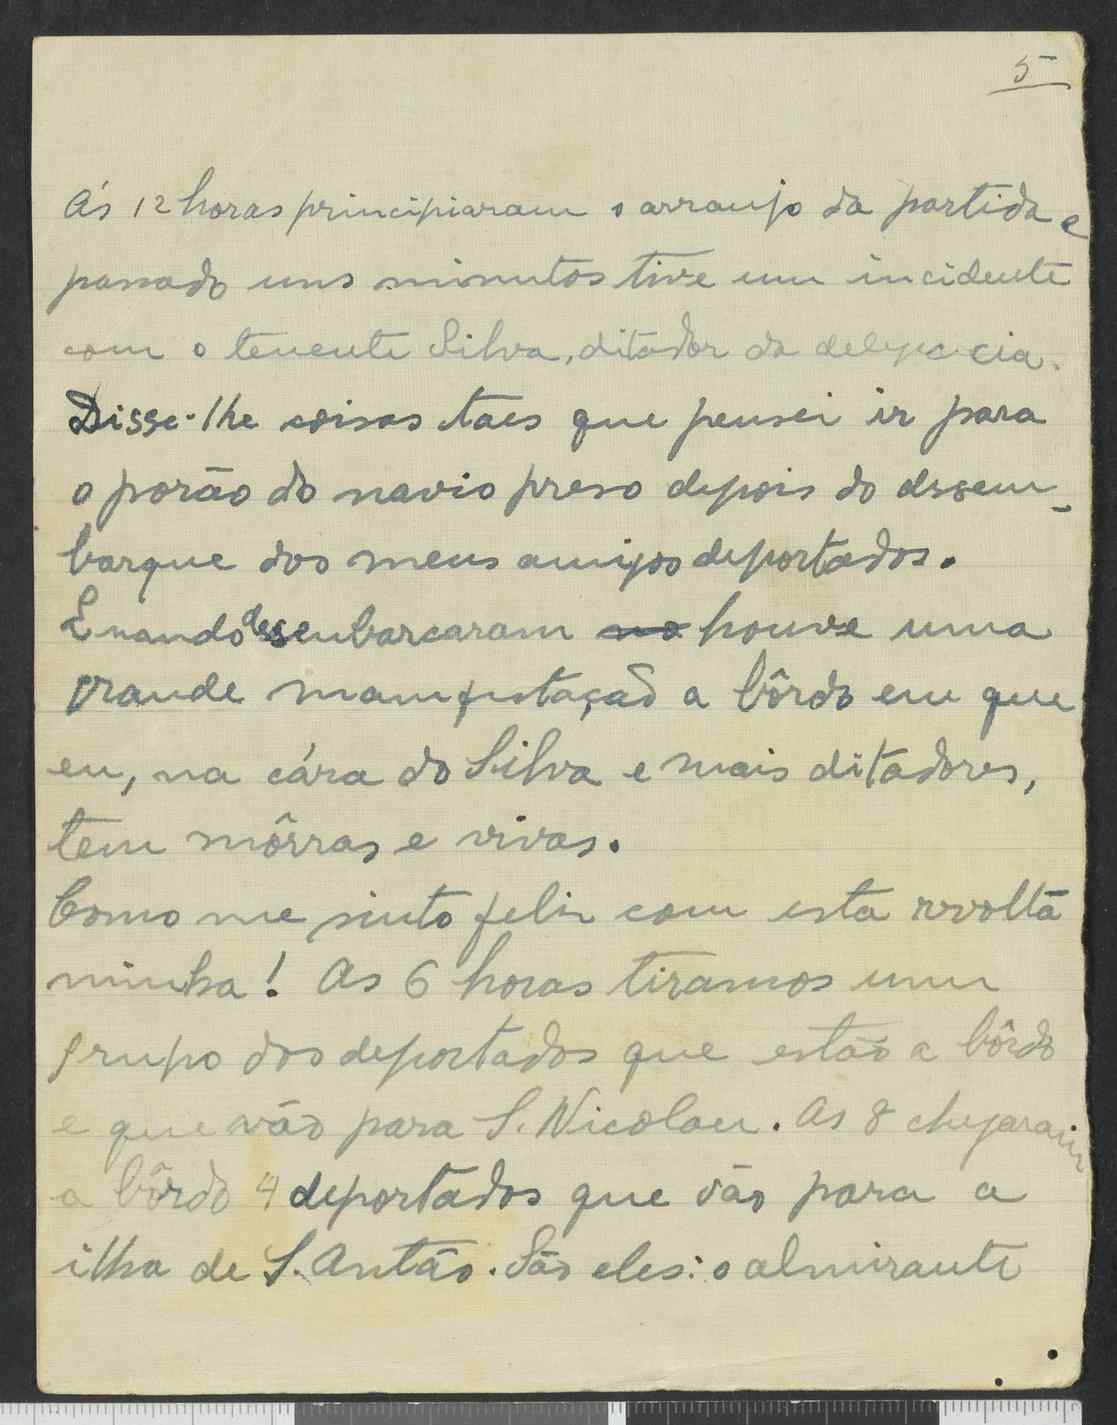 5
Ás 12 horas principiaram o arranjo da partida e
passado uns minutos tive um incidente
com o tenente Silva, ditador da delegacia.
Disse-lhe coisas taes que pensei ir para
o porão do navio preso depois do desem-
barque dos meus amigos deportados.
Quando desembarcaram houve uma
grande manifestação a bôrdo em que
eu, na cára do Silva e mais ditadores,
tem môrras e vivas.
Como me sinto feliz com esta revolta
minha! As 6 horas tiramos um
grupo dos deportados que estão a bôrdo
e que vão para S. Nicolau. As 8 chegaram
a bôrdo 4 deportados que vão para a
ilha de S. Antão. São eles: o almirante